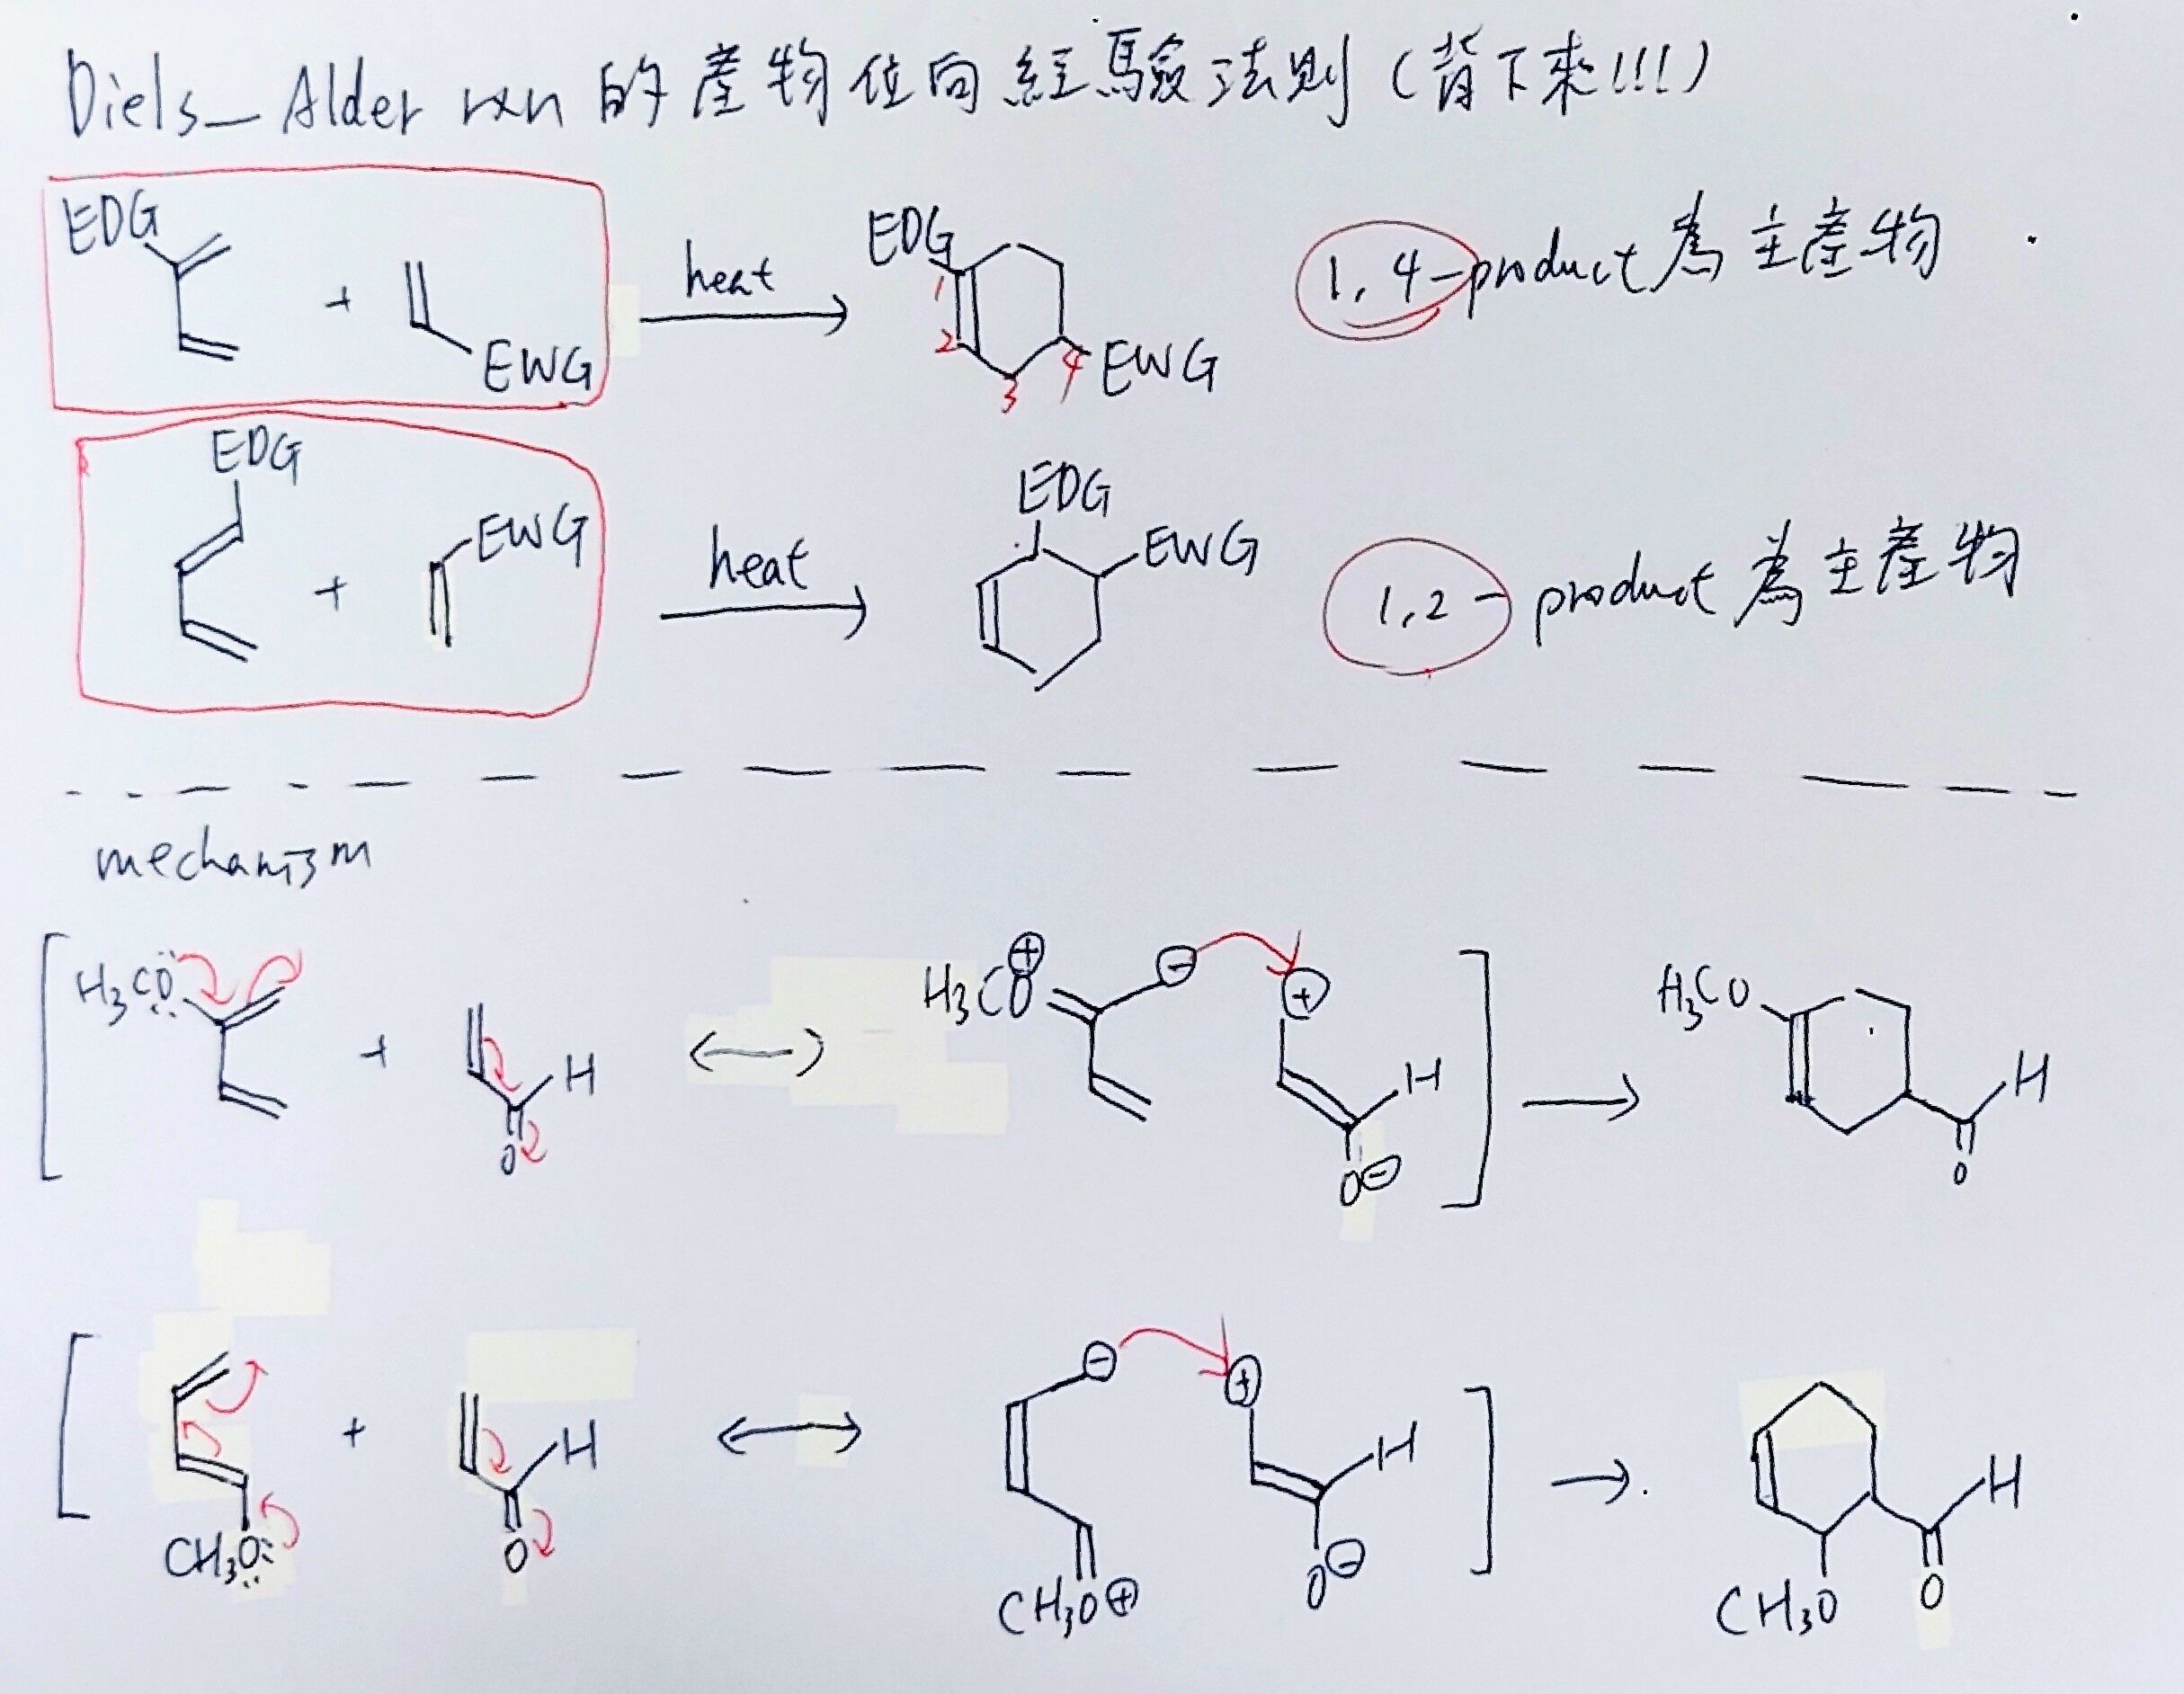 Diels-Alder rxn 的產物位向經驗法則 (背下來!!!)
EDG + EWG heat EDG 1 2 3 4 EWG 1,4-product 為主產物
EDG + EWG heat EDG EWG 1,2-product 為主產物
mechanism
H₃CÖ: + H O ↔ H₃CO⊕ ⊖ ⊕ H O⊖ → H₃CO H O
CH₃Ö: + H O ↔ ⊖ CH₃O⊕ ⊕ H O⊖ → CH₃O H O